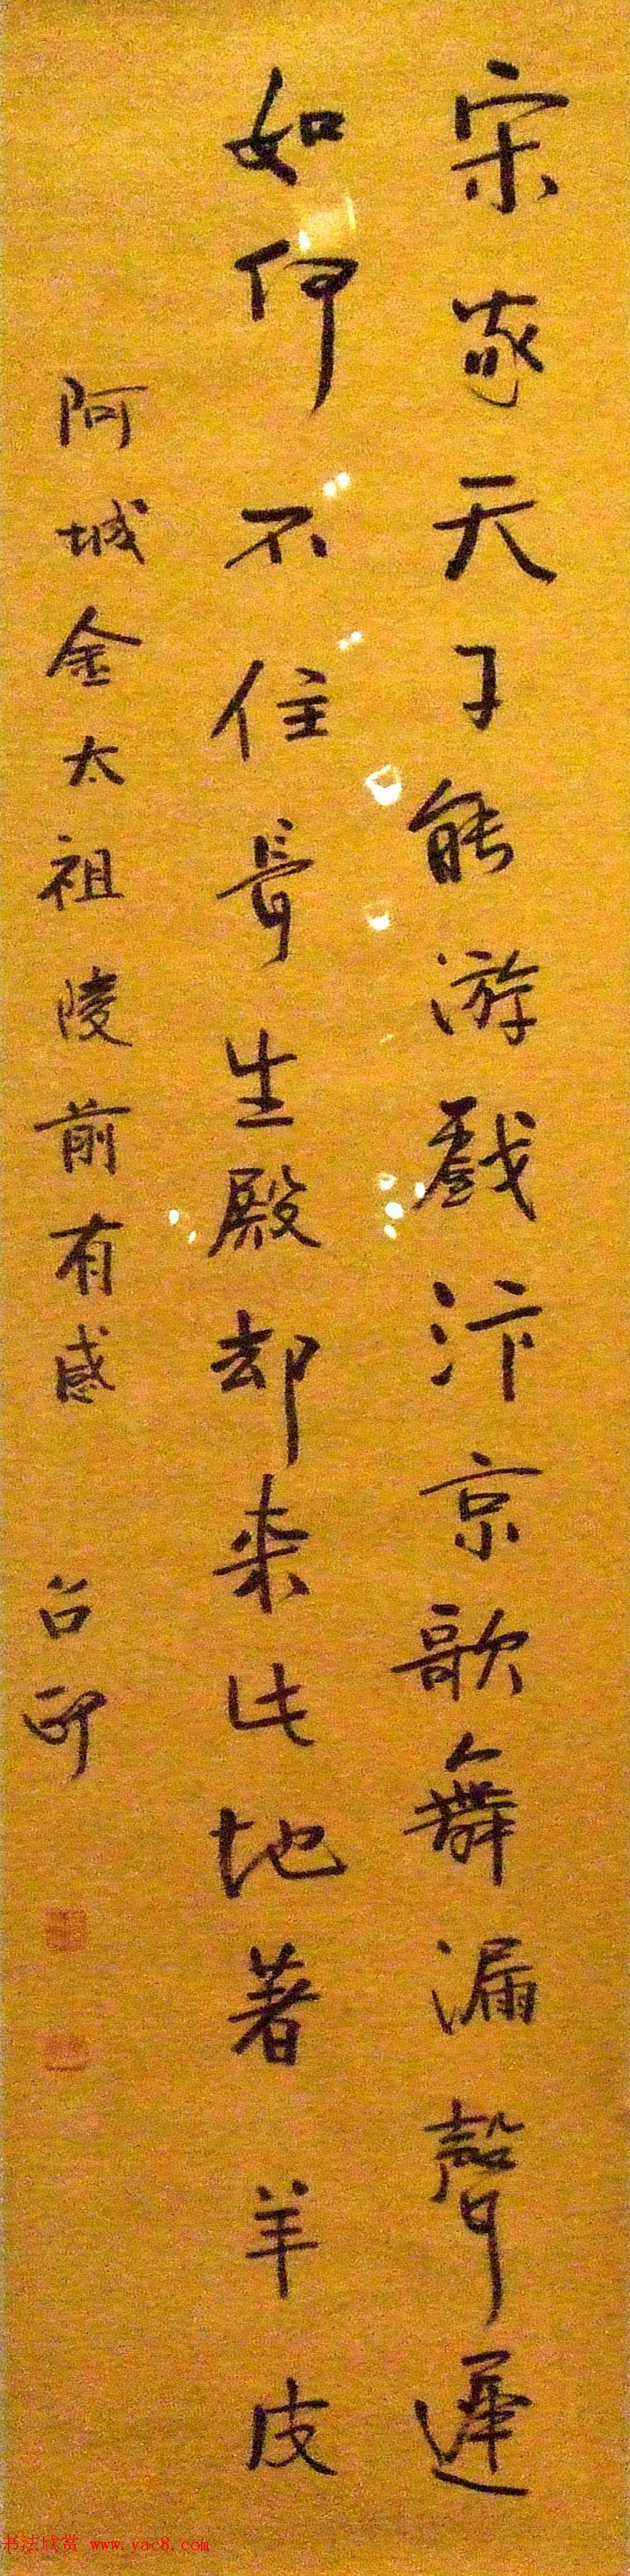 宋家天子能游戲汴京歌舞漏聲遲
如何不住長生殿却来此地著羊皮
阿城金太祖陵前有感
书法欣赏 www.yac8.com